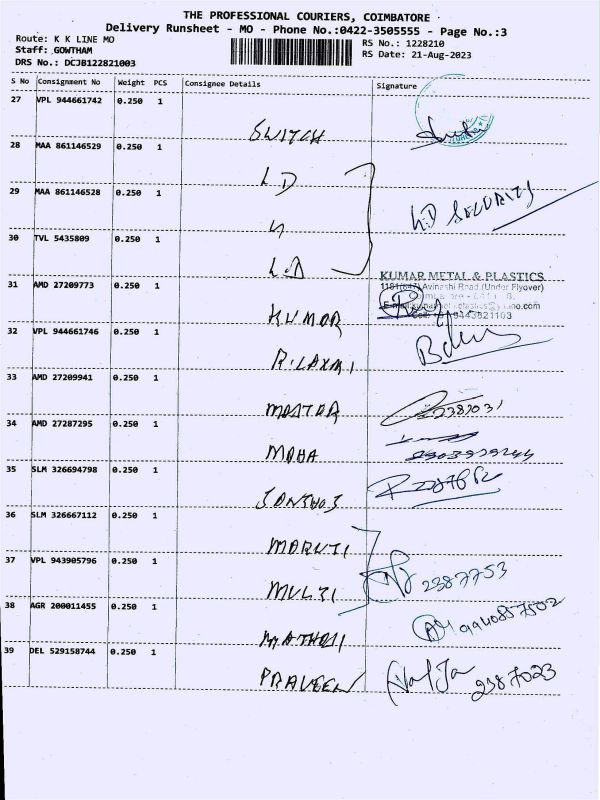 THE PROFESSIONAL COURIERS, COIMBATORE
Delivery Runsheet - MO - Phone No.:0422-3505555 - Page No.:3
Route: K K LINE MO
RS No.: 1228210
Staff: GOWTHAM
RS Date: 21-Aug-2023
DRS No.: DCJB122821003
S No Consignment No Weight PCS Consignee Details Signature
27 VPL 944661742 0.250 1
SWITCH
28 MAA 861146529 0.250 1
LD
29 MAA 861146528 0.250 1
LD SECURITY
30 TVL 5435809 0.250 1
LD
KUMAR METAL & PLASTICS
31 AMD 27209773 0.250 1
1181(647) Avinashi Road (Under Flyover)
KUMAR
32 VPL 944661746 0.250 1
R.LAXMI
33 AMD 27209941 0.250 1
MASTER
34 AMD 27287295 0.250 1
MAHA
35 SLM 326694798 0.250 1
SANTHOS
36 SLM 326667112 0.250 1
MARUTI
37 VPL 943905796 0.250 1
MULTI 2387753
38 AGR 200011455 0.250 1
9940857502
MATHAJI
39 DEL 529158744 0.250 1
PRAVEEN 2387023